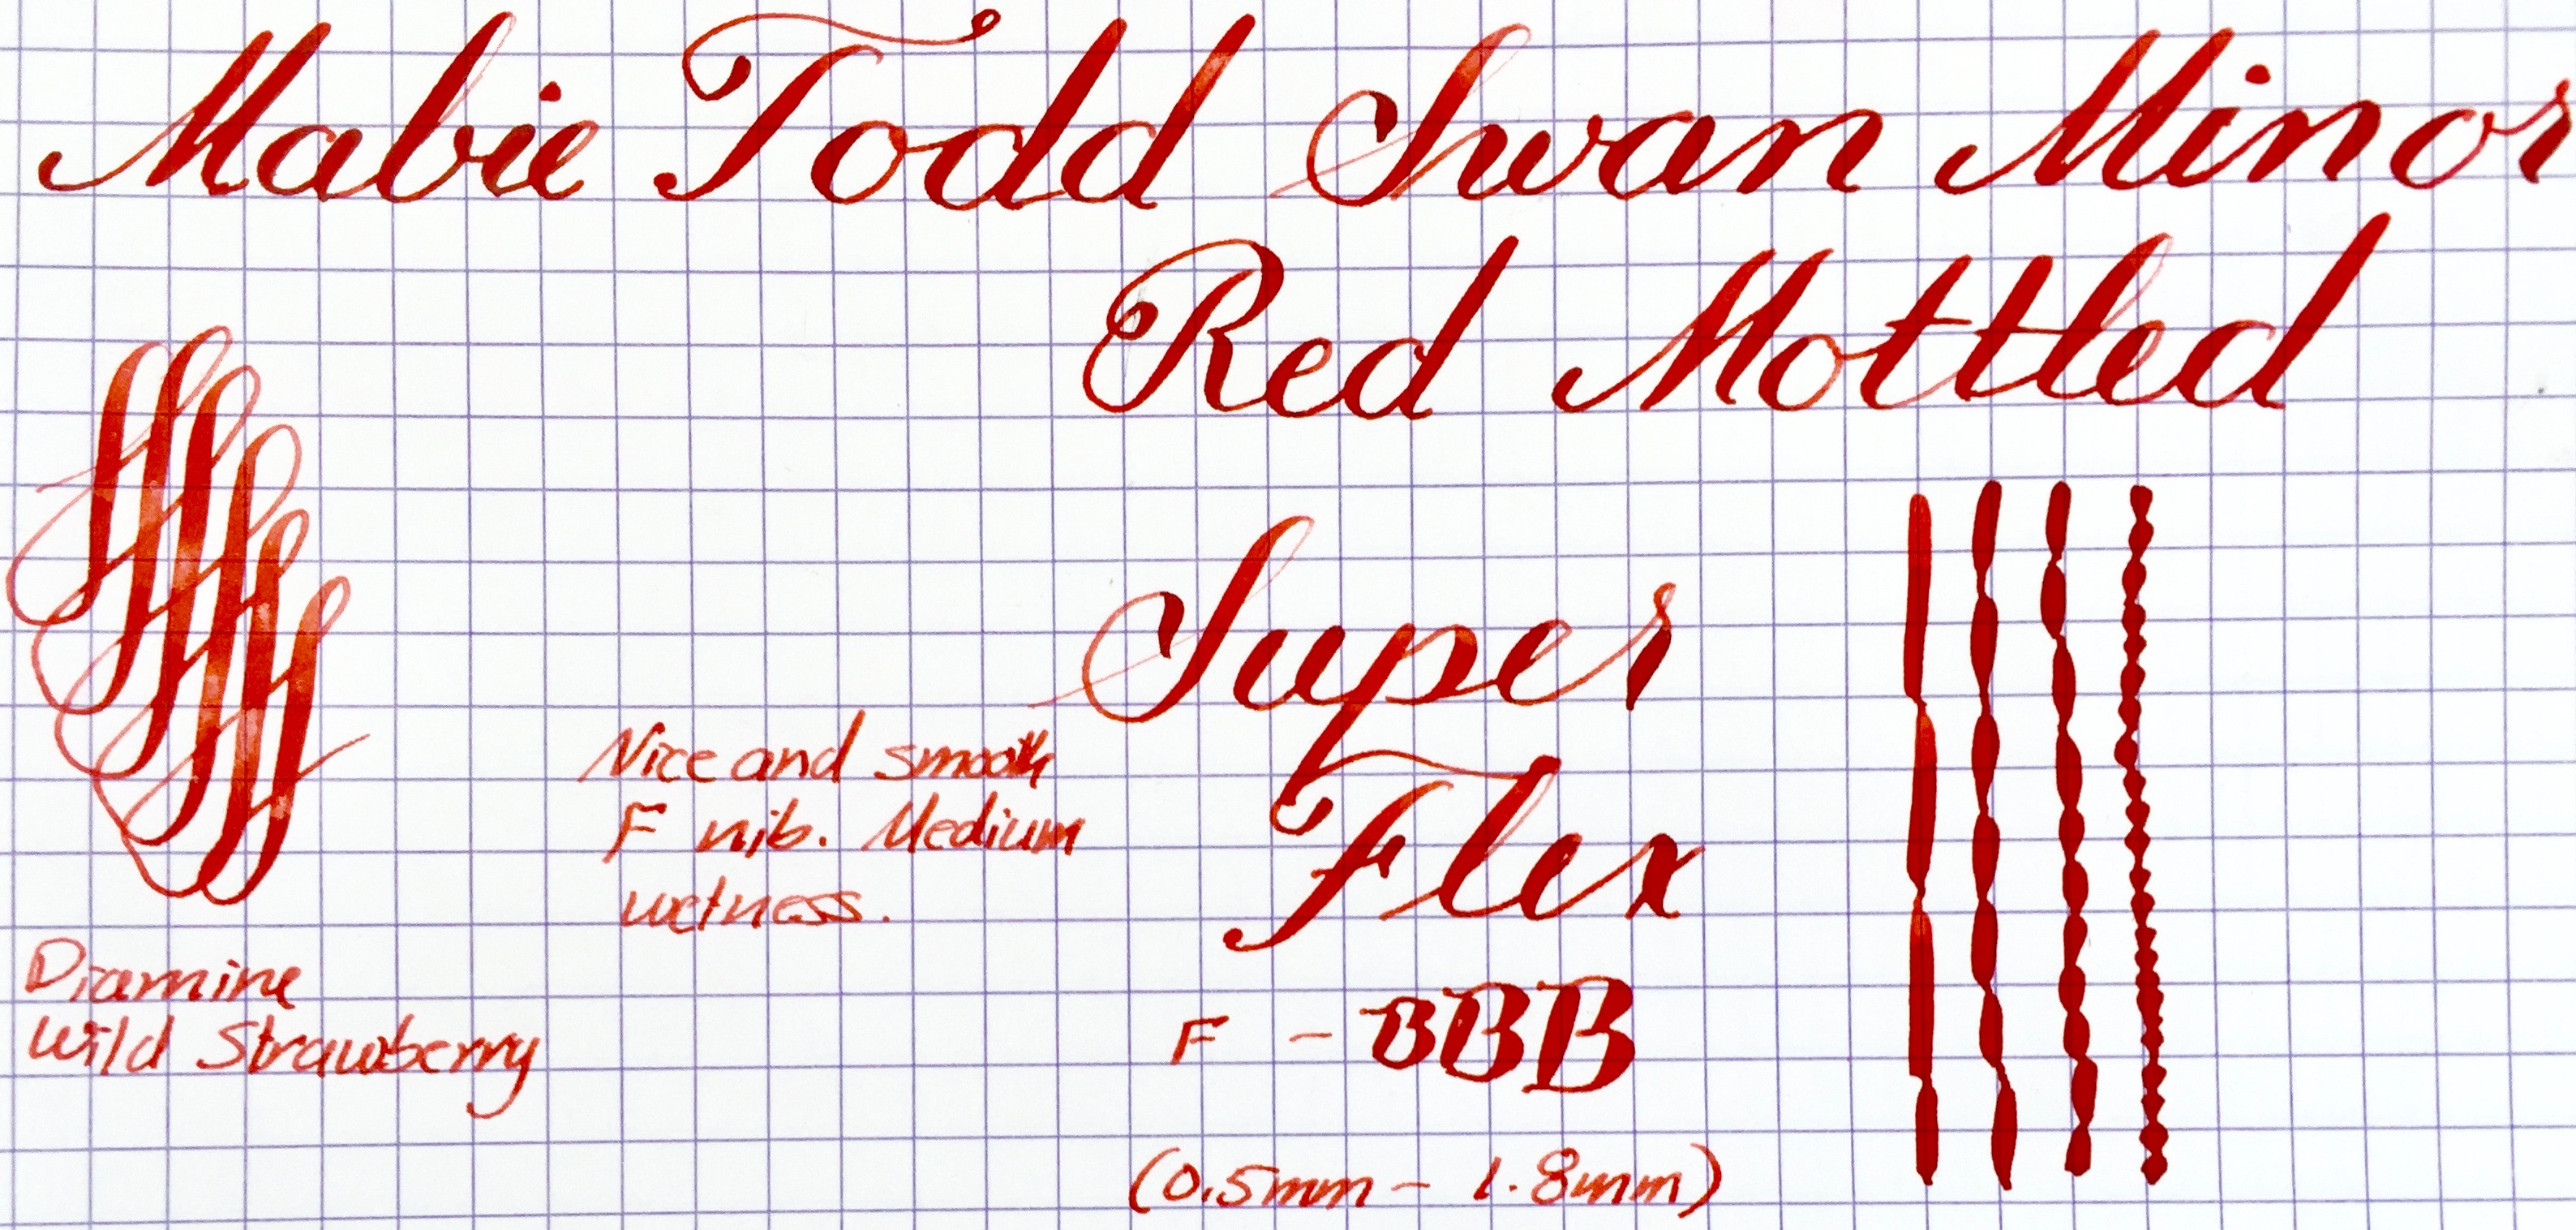 Mabie Todd Swan Minor
Red Mottled
Super
Flex
Nice and smooth
F nib. Medium
wetness.
Diamine
Wild Strawberry
F - BBB
(0.5mm - 1.8mm)